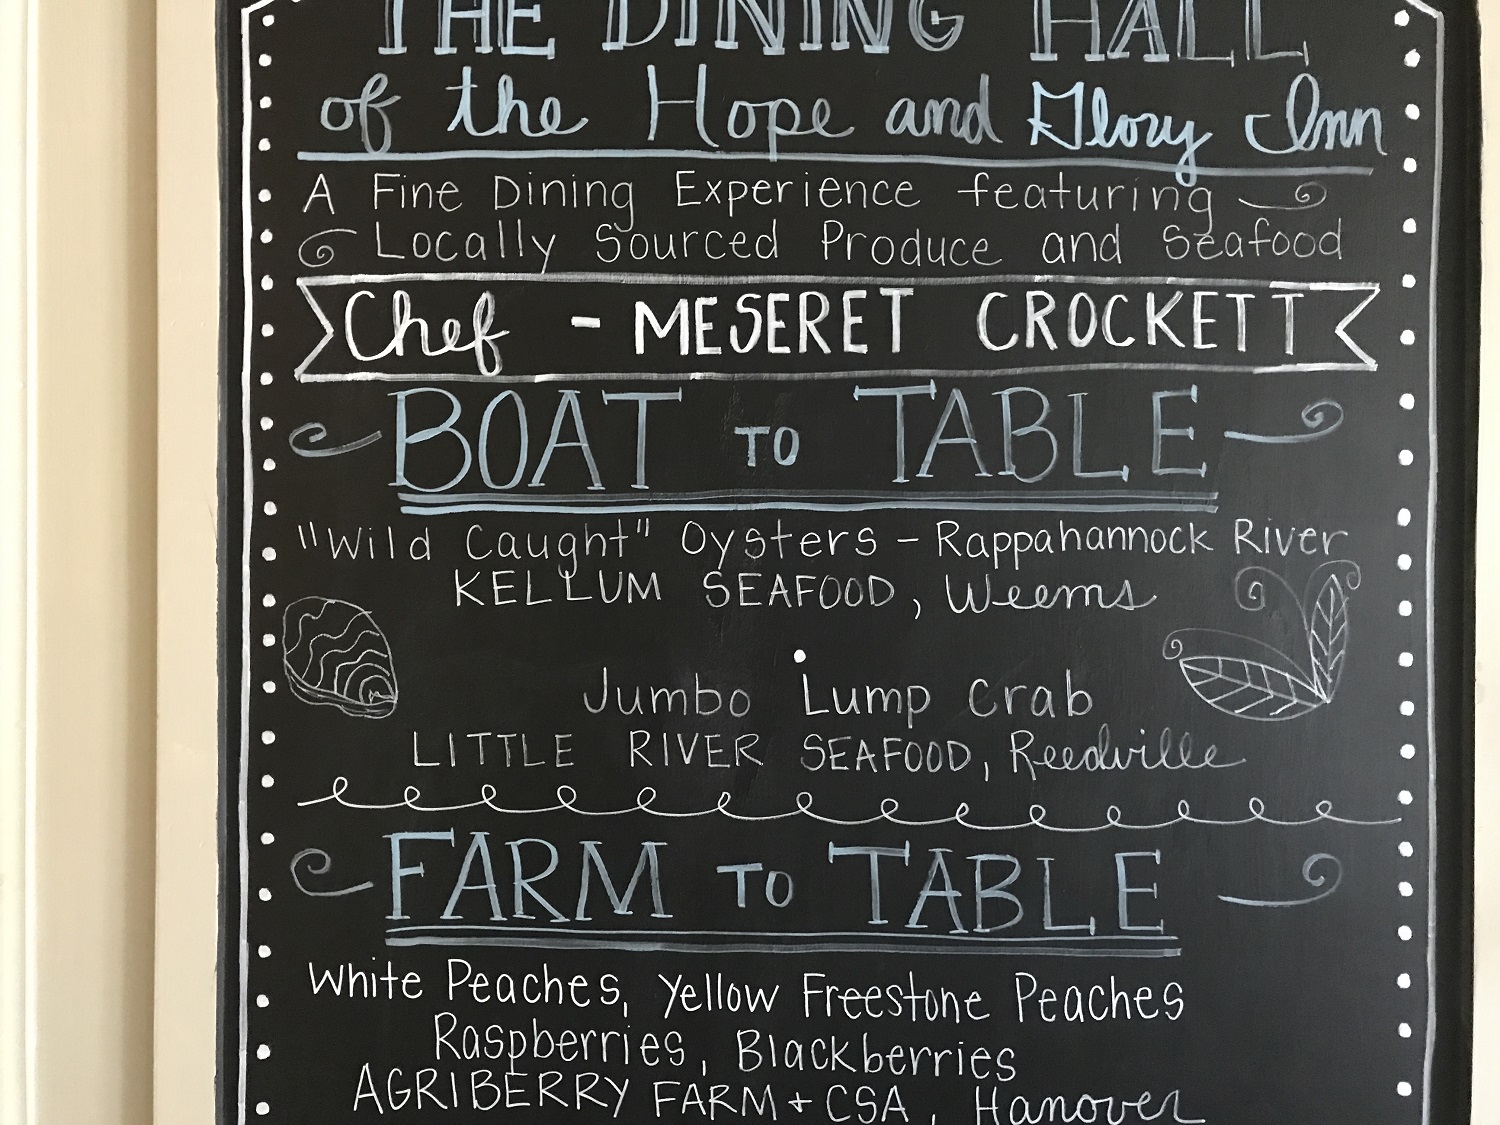 THE DINING HALL
of the Hope and Glory Inn
A Fine Dining Experience featuring
Locally Sourced Produce and Seafood
Chef - MESERET CROCKETT
BOAT TO TABLE
"Wild Caught" Oysters - Rappahannock River
KELLUM SEAFOOD, Weems
Jumbo Lump Crab
LITTLE RIVER SEAFOOD, Reedville
FARM TO TABLE
White Peaches, Yellow Freestone Peaches
Raspberries, Blackberries
AGRIBERRY FARM + CSA, Hanover